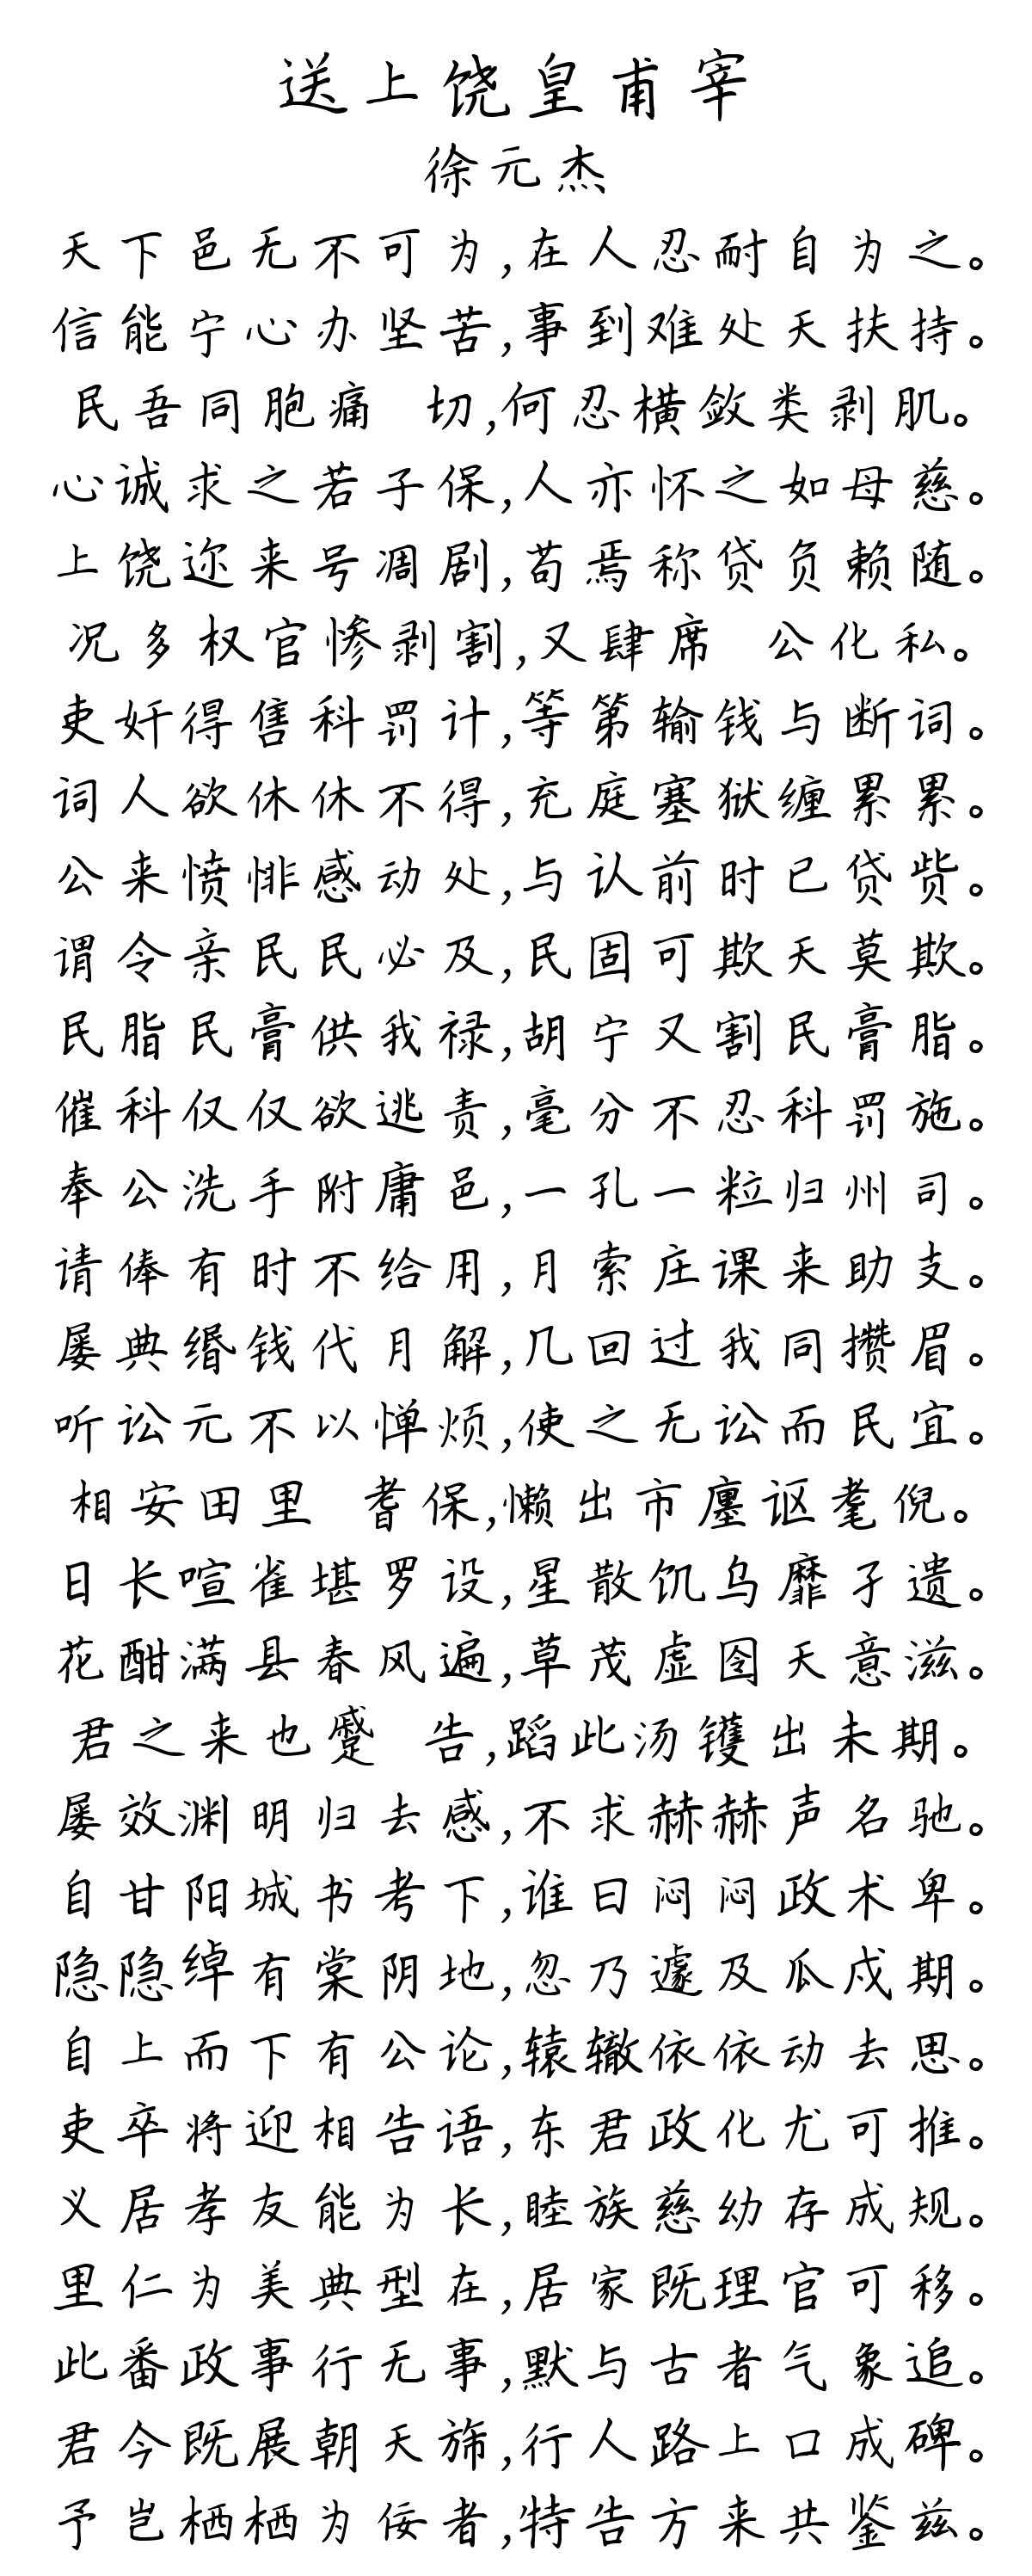 送上饶皇甫宰
徐元杰
天下邑无不可为,在人忍耐自为之。
信能宁心办坚苦,事到难处天扶持。
民吾同胞痛 切,何忍横敛类剥肌。
心诚求之若子保,人亦怀之如母慈。
上饶迩来号凋剧,苟焉称贷负赖随。
况多权官惨剥割,又肆席 公化私。
吏奸得售科罚计,等第输钱与断词。
词人欲休休不得,充庭塞狱缠累累。
公来愤悱感动处,与认前时已贷赀。
谓令亲民民必及,民固可欺天莫欺。
民脂民膏供我禄,胡宁又割民膏脂。
催科仅仅欲逃责,毫分不忍科罚施。
奉公洗手附庸邑,一孔一粒归州司。
请俸有时不给用,月索庄课来助支。
屡典缗钱代月解,几回过我同攒眉。
听讼元不以惮烦,使之无讼而民宜。
相安田里 耆保,懒出市廛讴耄倪。
日长喧雀堪罗设,星散饥乌靡孑遗。
花酣满县春风遍,草茂虚囹天意滋。
君之来也蹙 告,蹈此汤镬出未期。
屡效渊明归去感,不求赫赫声名驰。
自甘阳城书考下,谁曰闷闷政术卑。
隐隐绰有棠阴地,忽乃遽及瓜戍期。
自上而下有公论,辕辙依依动去思。
吏卒将迎相告语,东君政化尤可推。
义居孝友能为长,睦族慈幼存成规。
里仁为美典型在,居家既理官可移。
此番政事行无事,默与古者气象追。
君今既展朝天旆,行人路上口成碑。
予岂栖栖为佞者,特告方来共鉴兹。